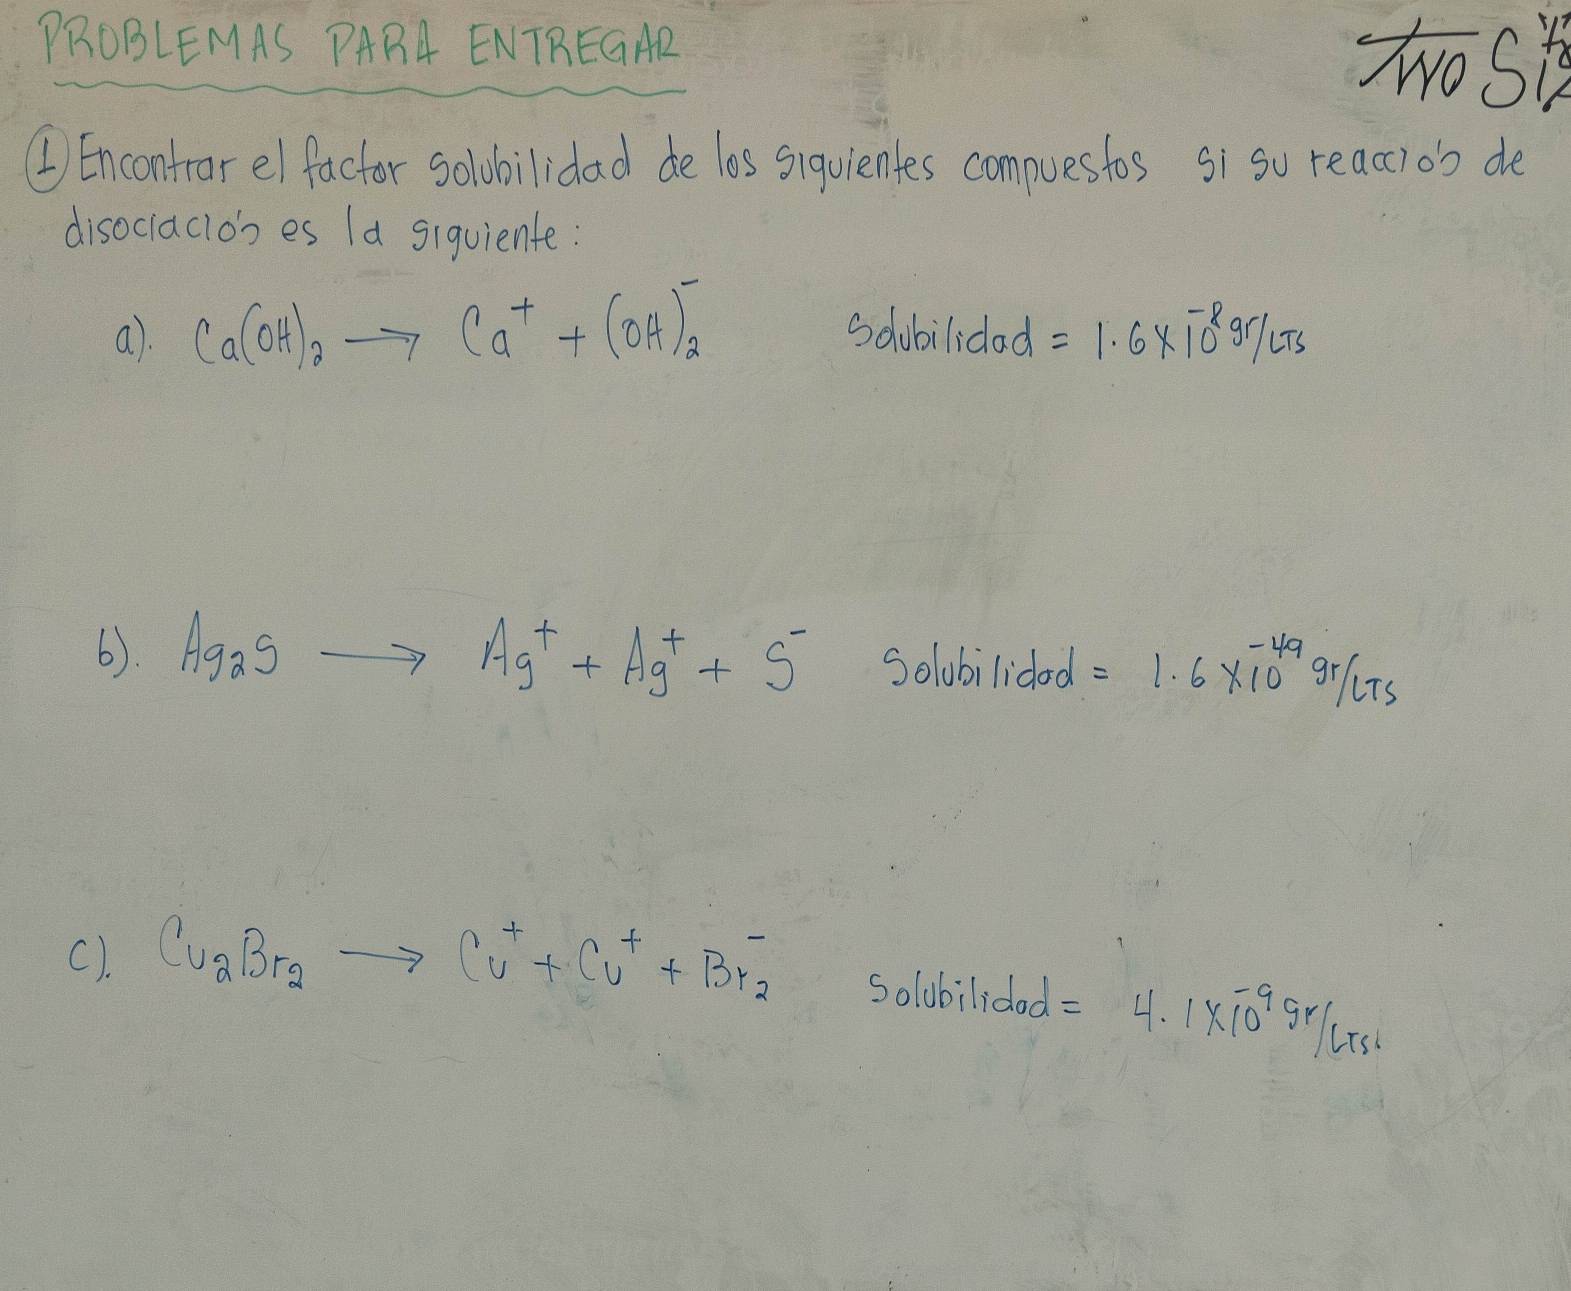 PROBLEMAS PARA ENTREGAR
TWO
① Encontrar el factor solubilidad de los siguientes compuestos si su reacción de
disociación es la siguiente:
a). Ca(OH)₂ → Ca⁺ + (OH)₂⁻ Solubilidad = 1.6 x 10⁻⁸ gr/LTS
b). Ag₂S → Ag⁺ + Ag⁺ + S⁻ Solubilidad = 1.6 x 10⁻⁴⁹ gr/LTS
c). Cu₂Br₂ → Cu⁺ + Cu⁺ + Br₂⁻ Solubilidad = 4.1 x 10⁻⁹ gr/LTS.